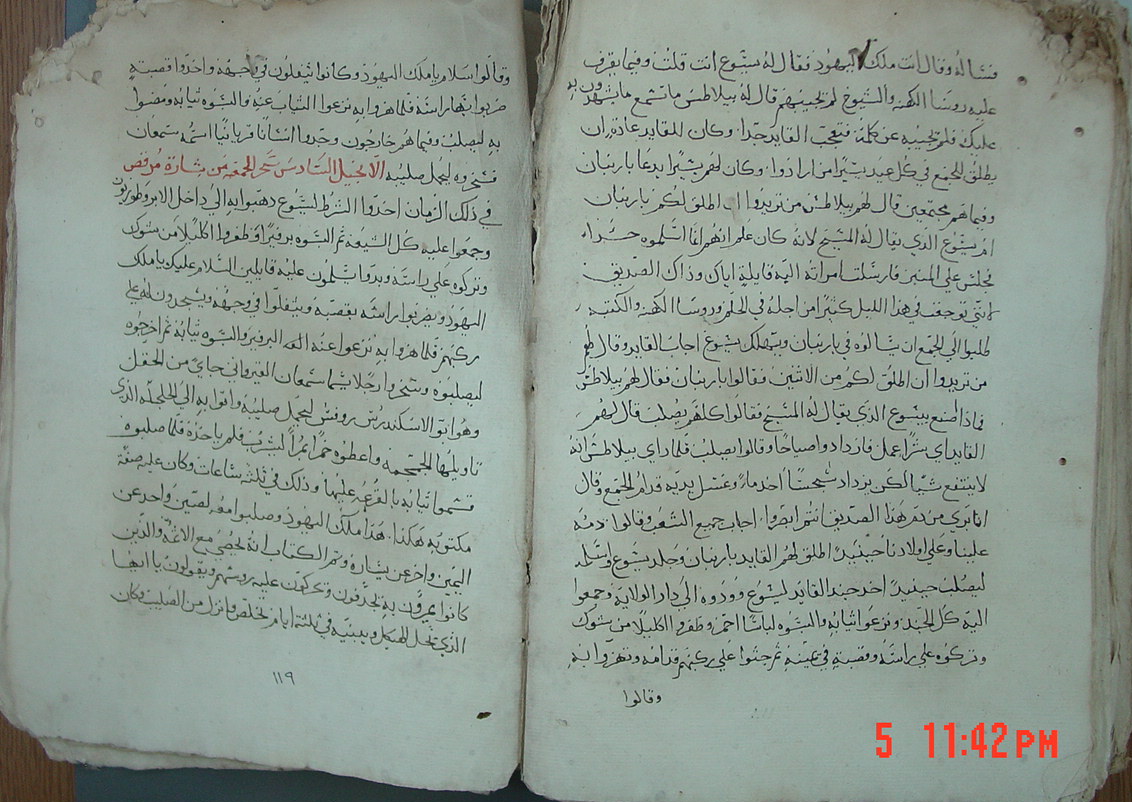 فسأله وقال انت ملك اليهود فقال له يسوع انت قلت وفيما يقرف
عليه روسا الكهنه والشيوخ لم يجيبهم قال له بيلاطس ما تسمع ما يشهدون به
عليك فلم يجيبه عن كلمه فتعجب القايد جدا. وكان للقايد عادة ان
يطلق للجمع في كل عيد يسيرا من ارادوا. وكان لهم يسيرا يدعا باربنان
وفيما هم مجتمعين قال لهم بيلاطس من تريدوا ان اطلق لكم باربنان
ام يسوع الذي يقال له المسيح لانه كان علم انهم انما اسلموه حسدا
فجلس علي المنبر فارسلت امراته اليه قايله اياك وذاك الصديق
لانني توجعت في هذا الليل كثيرا من اجله في الحلم وروسا الكهنه والكتبه
طلبوا الي الجمع ان يسالوه في باربنان ويهلك يسوع اجاب القايد وقال لهم
من تريدوا ان اطلق لكم من الاثنين فقالوا باربنان فقال لهم بيلاطس
فماذا اصنع بيسوع الذي يقال له المسيح فقالوا كلهم يصلب قال لهم
القايد اي شرا عمل فازدادوا صياحا وقالوا يصلب فلما راي بيلاطس انه
لا ينتفع شيا لكن يزداد سجسا اخذ ما وغسل يديه قدام الجمع وقال
انا بري من دم هذا الصديق انتم ابصروا. اجاب جميع الشعب وقالوا. دمه
علينا وعلي اولادنا حينيذ اطلق لهم القايد باربنان وجلد يسوع واسلمه
ليصلب حينيذ اخذ جند القايد ليسوع وودوه الي دار الولايه وجمعوا
اليه كل الجند ونزعوا ثيابه والبسوه لباسا احمر وظفروا اكليلا من شوك
وتركوه علي راسه وقصبة في يمينه ثم جثوا علي ركبهم قدامه وتهزوا به
وقالوا
وقالوا سلام يا ملك اليهود وكانوا يتفلون في وجهه واخذوا قصبة
ضربوا بها راسه فلما هزوا به نزعوا الثياب عنه والبسوه ثيابه ومضوا
به ليصلب وفيما هم خارجون وجدوا انسانا قريانيا اسمه سمعان
فسخروه ليحمل صليبه الانجيل السادس سحر الجمعه من بشارة مرقص
في ذلك الزمان اخذوا الشرط ليسوع ذهبوا به الي داخل الابروطوريون
وجمعوا عليه كل الشيعه ثم البسوه برفيرا وظفروا اكليلا من شوك
وتركوه علي راسه وبدوا يسلمون عليه قايلين السلام عليك يا ملك
اليهود ويضربوا راسه بقصبة ويتفلوا في وجهه ويسجدون له علي
ركبهم فلما هزوا به نزعوا عنه البرفير والبسوه ثيابه ثم اخرجوه
ليصلبوه وسخروا رجلا يسما سمعان القيرواني جاي من الحقل
وهو ابو الاسكندرس وروفس ليحمل صليبه واتوا به الي الجلجله الذي
تاويلها الجمجمه واعطوه خمرا مرا ليشرب فلم ياخذه فلما صلبوه
قسموا ثيابه بالقرعه عليها وذلك في ثلثه ساعات وكان عليه صفة
مكتوبه هكذا. هذا ملك اليهود وصلبوا معه لصين واحد عن
اليمين واخر عن يساره وتم الكتاب انه يحصي مع الاثمه والذين
كانوا يمرون به يجدفون وتحركون عليه روسهم ويقولون يا ايها
الذي تحل الهيكل ويبنيه في ثلثة ايام خلص وانزل من الصليب وكان
١١٩
5 11:42 PM